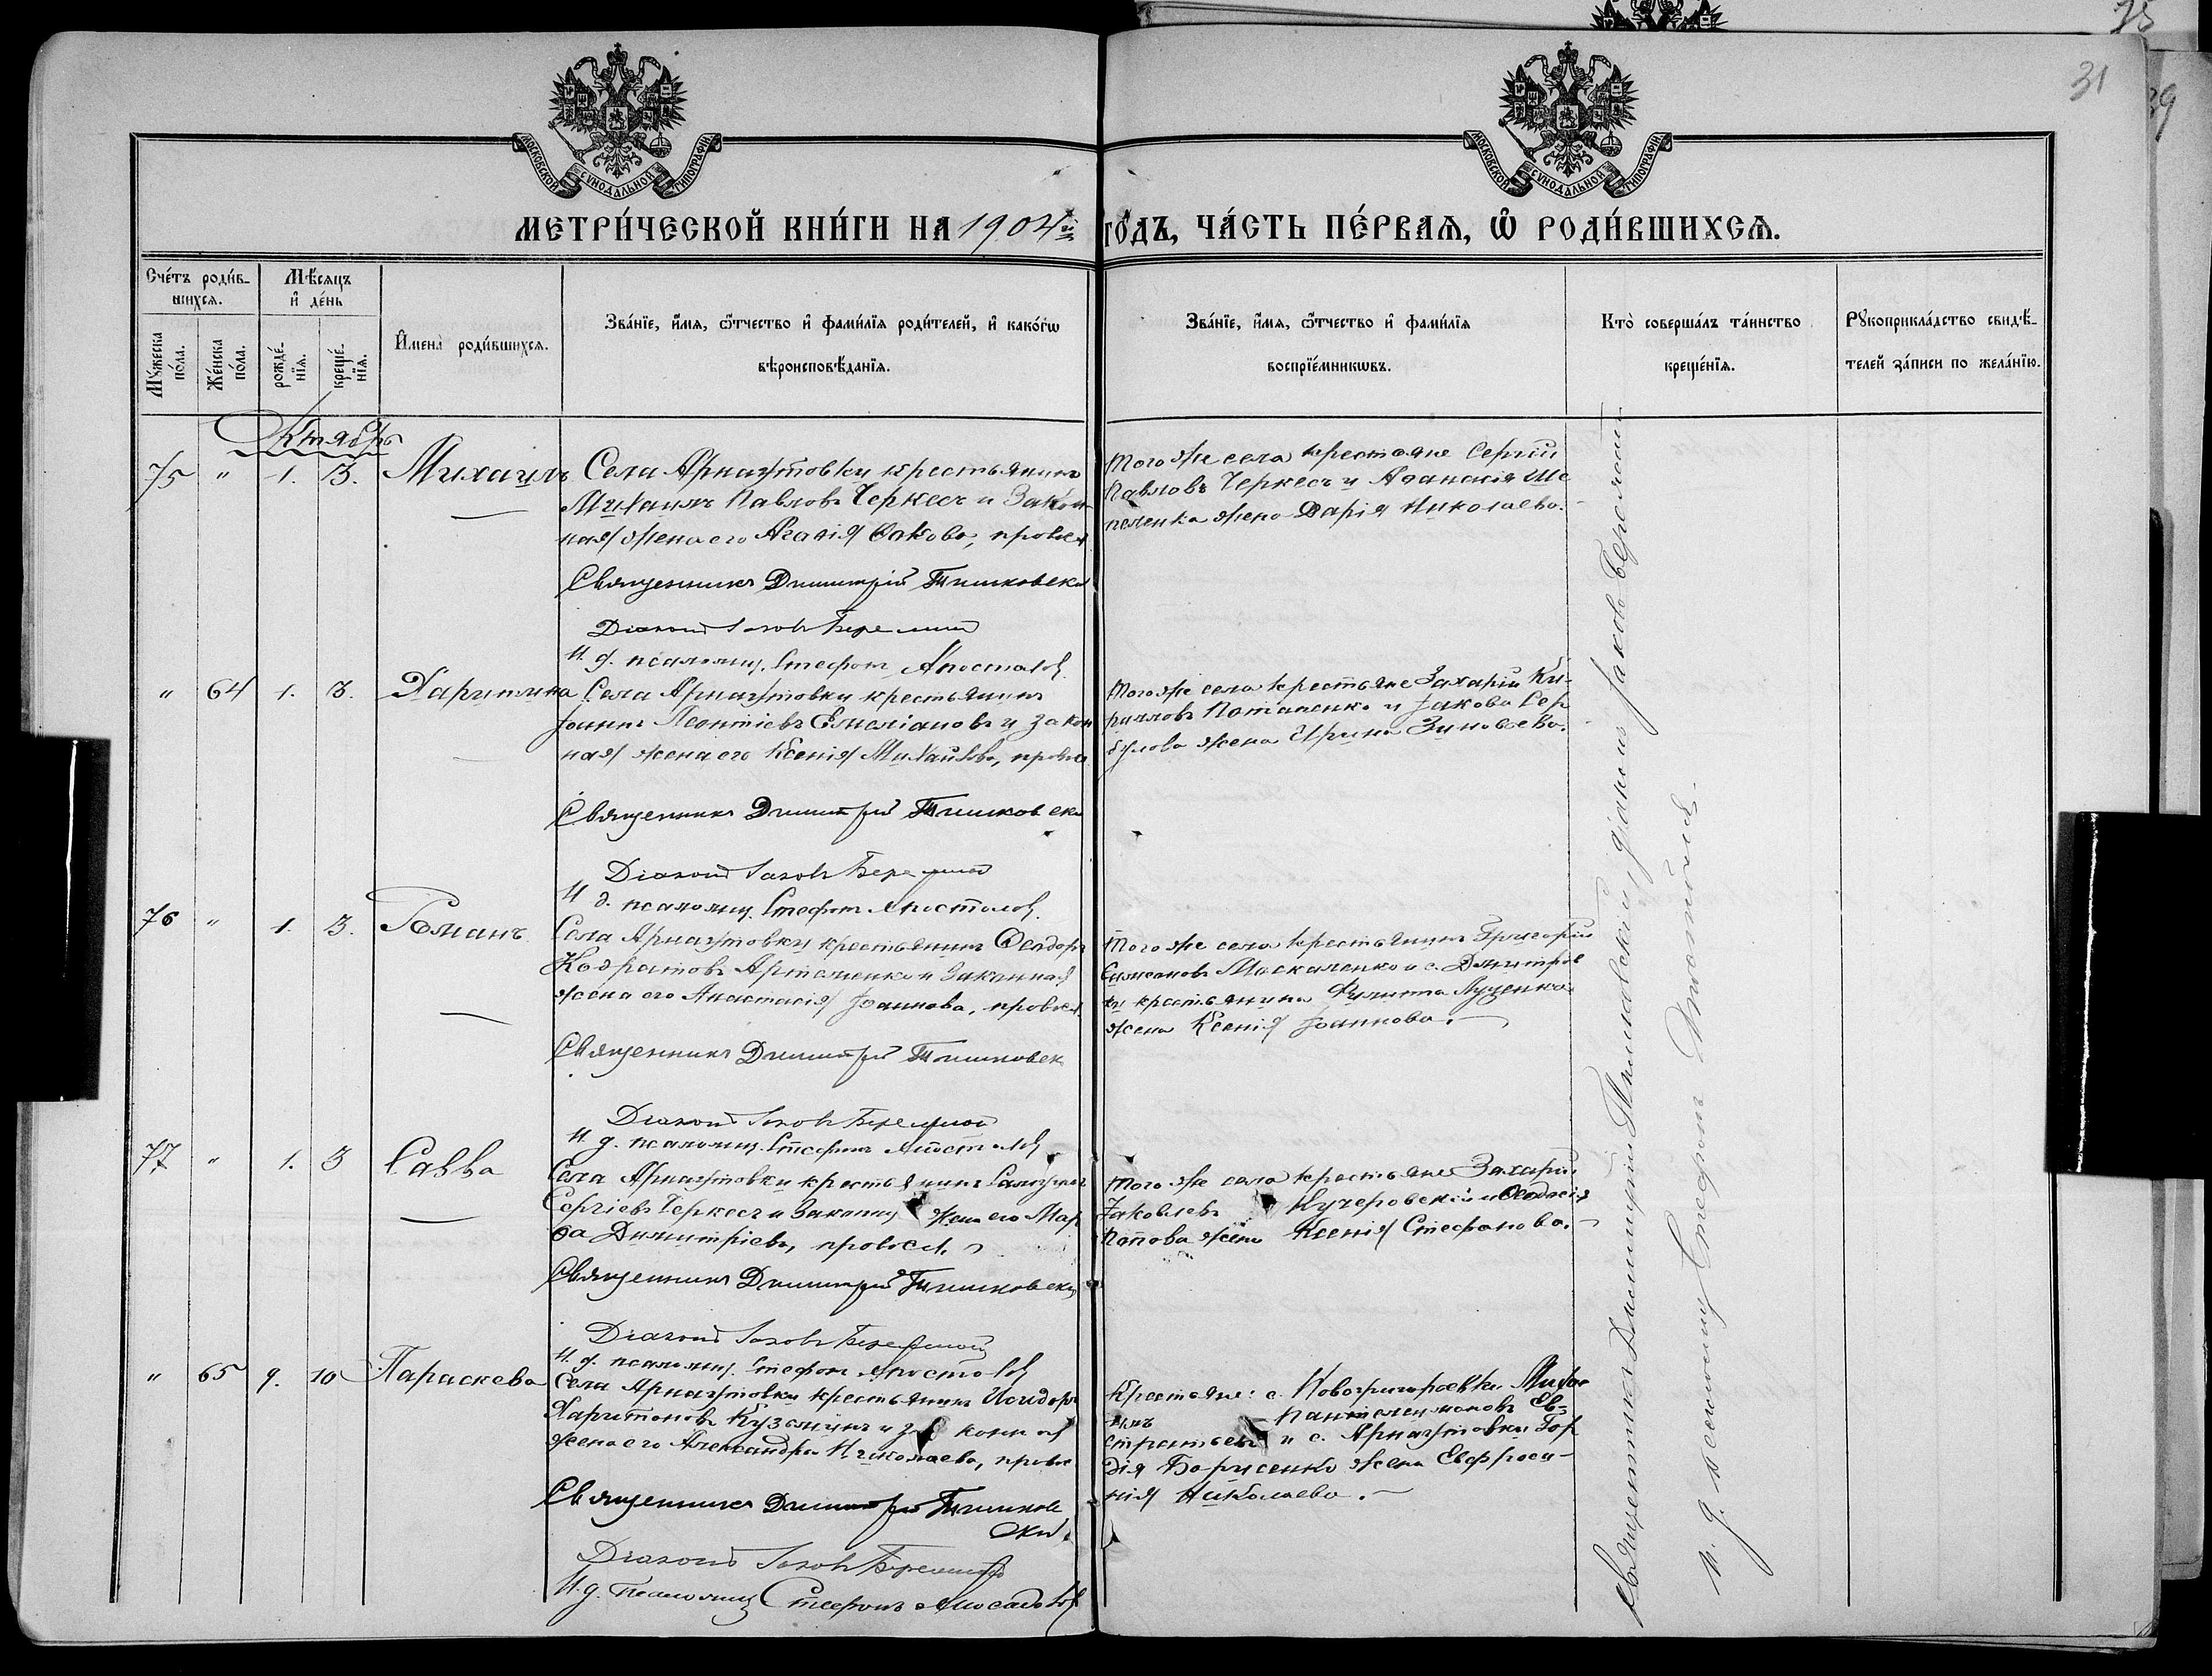 75
31
39
МОСКОВСКОЙ СѴНОДАЛЬНОЙ ТИПОГРАФІИ
МОСКОВСКОЙ СѴНОДАЛЬНОЙ ТИПОГРАФІИ
МЕТРИ́ЧЕСКОЙ КНИ́ГИ НА 1904й ГО́ДЪ, ЧА́СТЬ ПЕ́РВАЯ, Ѡ РОДИ́ВШИХСЯ.
Сче́тъ роди́в-
шихся.
Мѣ́сяцъ
и҆ де́нь
Мꙋ́жеска по́ла.
Же́нска по́ла.
рожде́нїя.
креще́нїя.
И҆мена̀ роди́вшихся.
Зва́нїе, и҆́мя, ѻ҆́тчество и҆ фами́лїя роди́телей, и҆ како́гѡ
вѣроисповѣ́данїя.
Зва́нїе, и҆́мя, ѻ҆́тчество и҆ фами́лїя
воспрїе́мникѡвъ.
Кто̀ соверша́лъ та́инство
креще́нїя.
Рꙋкоприкла́дство свидѣ́-
телей за́писи по жела́нїю.
Октябрь
75 " 1. 3. Михаилъ
Села Арнаутовки крестьянинъ
Михаилъ Павловъ Черкесъ и Закон-
ная жена его Агафія Іаковова, правосл.
Священникъ Димитрій
Діаконъ Іаковъ
И. д. псаломщ. Стефанъ Апостоловъ
Того же села крестьяне Сергій
Павловъ Черкесъ и Афанасія Ше
пеленка жена Дарія Николаева.
" 64 1. 3. Харитина
Села Арнаутовки крестьянинъ
Іоаннъ Леонтіевъ Емеліановъ и закон
ная жена его Ксенія Михайлова, правосл.
Священникъ Димитрій
Діаконъ Іаковъ
И д. псаломщ. Стефанъ Апостоловъ
Того же села крестьяне Захарій Ки-
рилловъ Потапенко и Іакова Сер
булова жена Ирина Зиновьева.
76 " 1. 3. Романъ
Села Арнаутовки крестьянинъ Феодоръ
Кодратовъ Артеменко и Законная
жена его Анастасія Іоаннова, правосл.
Священникъ Димитрій
Діаконъ Іаковъ
И. д. псаломщ. Стефанъ Апостоловъ
Того же села крестьянинъ Григорій
Симеоновъ Москаленко и с. Дмитров
ки крестьянина Филиппа Луценка
жена Ксенія Іоаннова.
77 " 1. 3 Савва
Села Арнаутовки крестьянинъ Самуилъ
Сергіевъ Черкесъ и Законная жена его Мар
фа Димитріева, правосл.
Священникъ Димитрій
Діаконъ Іаковъ
И. д. псаломщ. Стефанъ Апостоловъ
Того же села крестьяне Захарій
Іаковлевъ Кучеровскій и Феодосія
Попова жена Ксенія Стефанова.
" 65 9. 10 Параскева
Села Арнаутовки крестьянинъ Исидоръ
Харитоновъ Кузьминъ и законная
жена его Александра Николаева, правосл.
Священникъ Димитрій
Діаконъ Іаковъ
И. д. псаломщ. Стефанъ Апостоловъ
Крестьяне: с. Новогригорьевки Миха
илъ Пантелеимоновъ Ев-
стратьевъ и с. Арнаутовки Гор
дія Борисенко жена Евфроси-
нія Николаева.
Священникъ Димитрій діаконъ Іаковъ
и. д. псаломщ. Стефанъ Апостоловъ